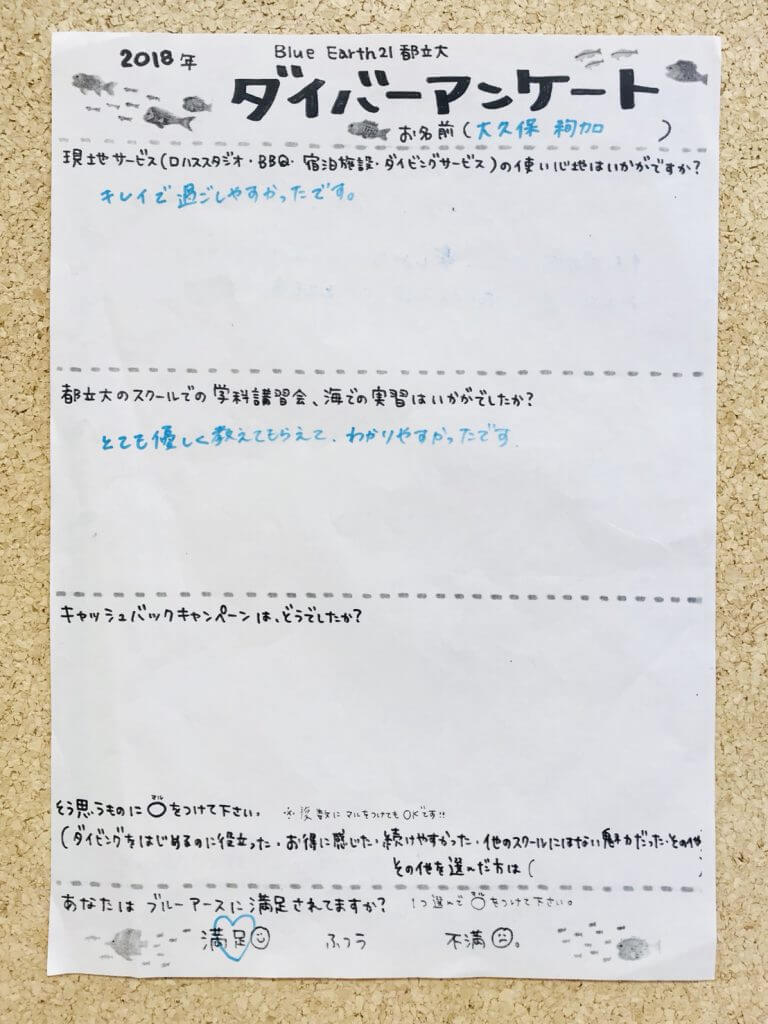 2018年
Blue Earth21 都立大
ダイバーアンケート
お名前(大久保 絢加)
現地サービス(ロハススタジオ・BBQ・宿泊施設・ダイビングサービス)の使い心地はいかがですか?
キレイで過ごしやすかったです。
都立大のスクールでの学科講習会、海での実習はいかがでしたか?
とても優しく教えてもらえて、わかりやすかったです
キャッシュバックキャンペーンは、どうでしたか?
マル
そう思うものに〇をつけて下さい。 ※複数にマルをつけてもOKです!!
(ダイビングをはじめるのに役立った・お得に感じた・続けやすかった・他のスクールにはない魅力だった・その他
その他を選んだ方は( )
あなたは ブルーアースに満足されてますか? 1つ選んで〇をつけて下さい。
満足 ふつう 不満。